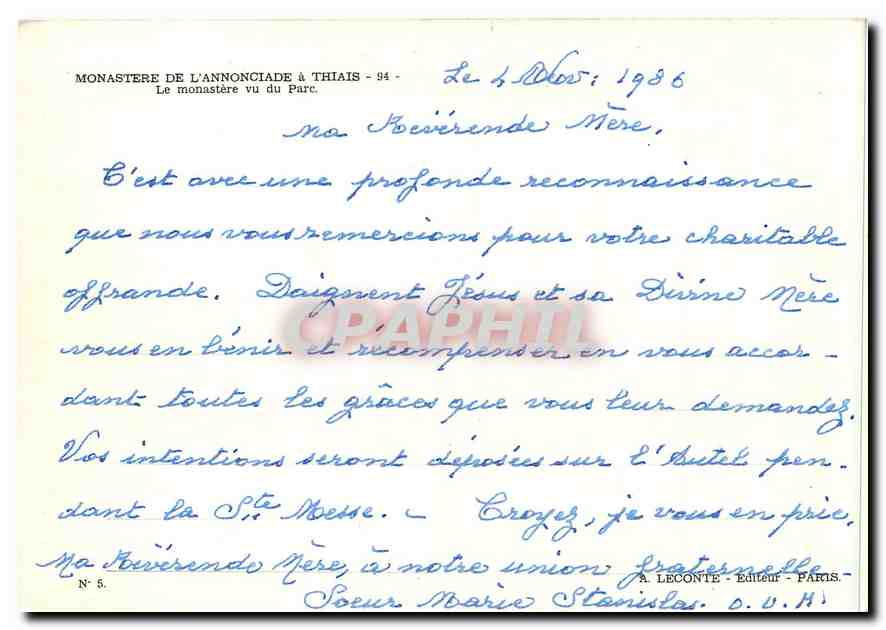 MONASTERE DE L'ANNONCIADE à THIAIS - 94 -
Le monastère vu du Parc.
Le 4 Nov: 1986
Ma Révérende Mère,
C'est avec une profonde reconnaissance
que nous vous remercions pour votre charitable
offrande. Daignent Jésus et sa Divine Mère
vous en bénir et récompenser en vous accor-
dant toutes les grâces que vous leur demandez.
Vos intentions seront déposées sur l'Autel pen-
dant la Ste Messe. - Croyez, je vous en prie,
Ma Révérende Mère, à notre union fraternelle.
Soeur Marie Stanislas. O.V.M.
N° 5.
A. LECONTE - Editeur - PARIS.
CPAPHIL